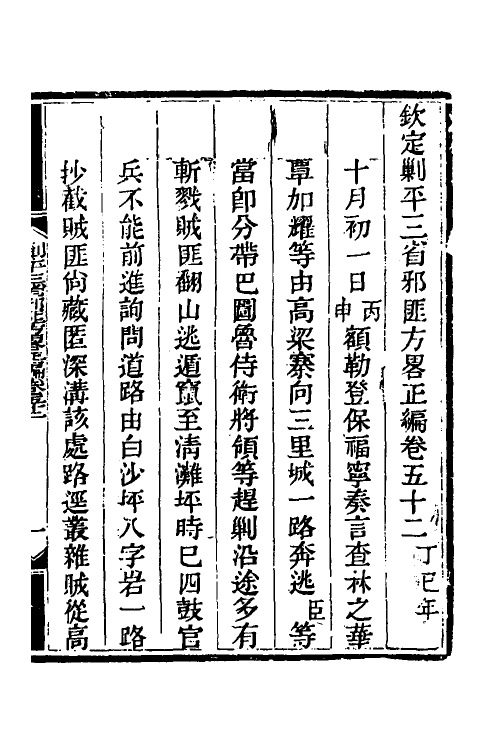 欽定剿平三省邪匪方畧正編卷五十二 丁巳年
十月初一日丙申額勒登保福寧奏言查林之華
覃加耀等由高梁寨向三里城一路奔逃臣等
當卽分帶巴圖魯侍衛將領等趕剿沿途多有
斬戮賊匪翻山逃遁竄至淸灘坪時已四鼓官
兵不能前進詢問道路由白沙坪八字岩一路
抄截賊匪尙藏匿深溝該處路逕叢雜賊從高